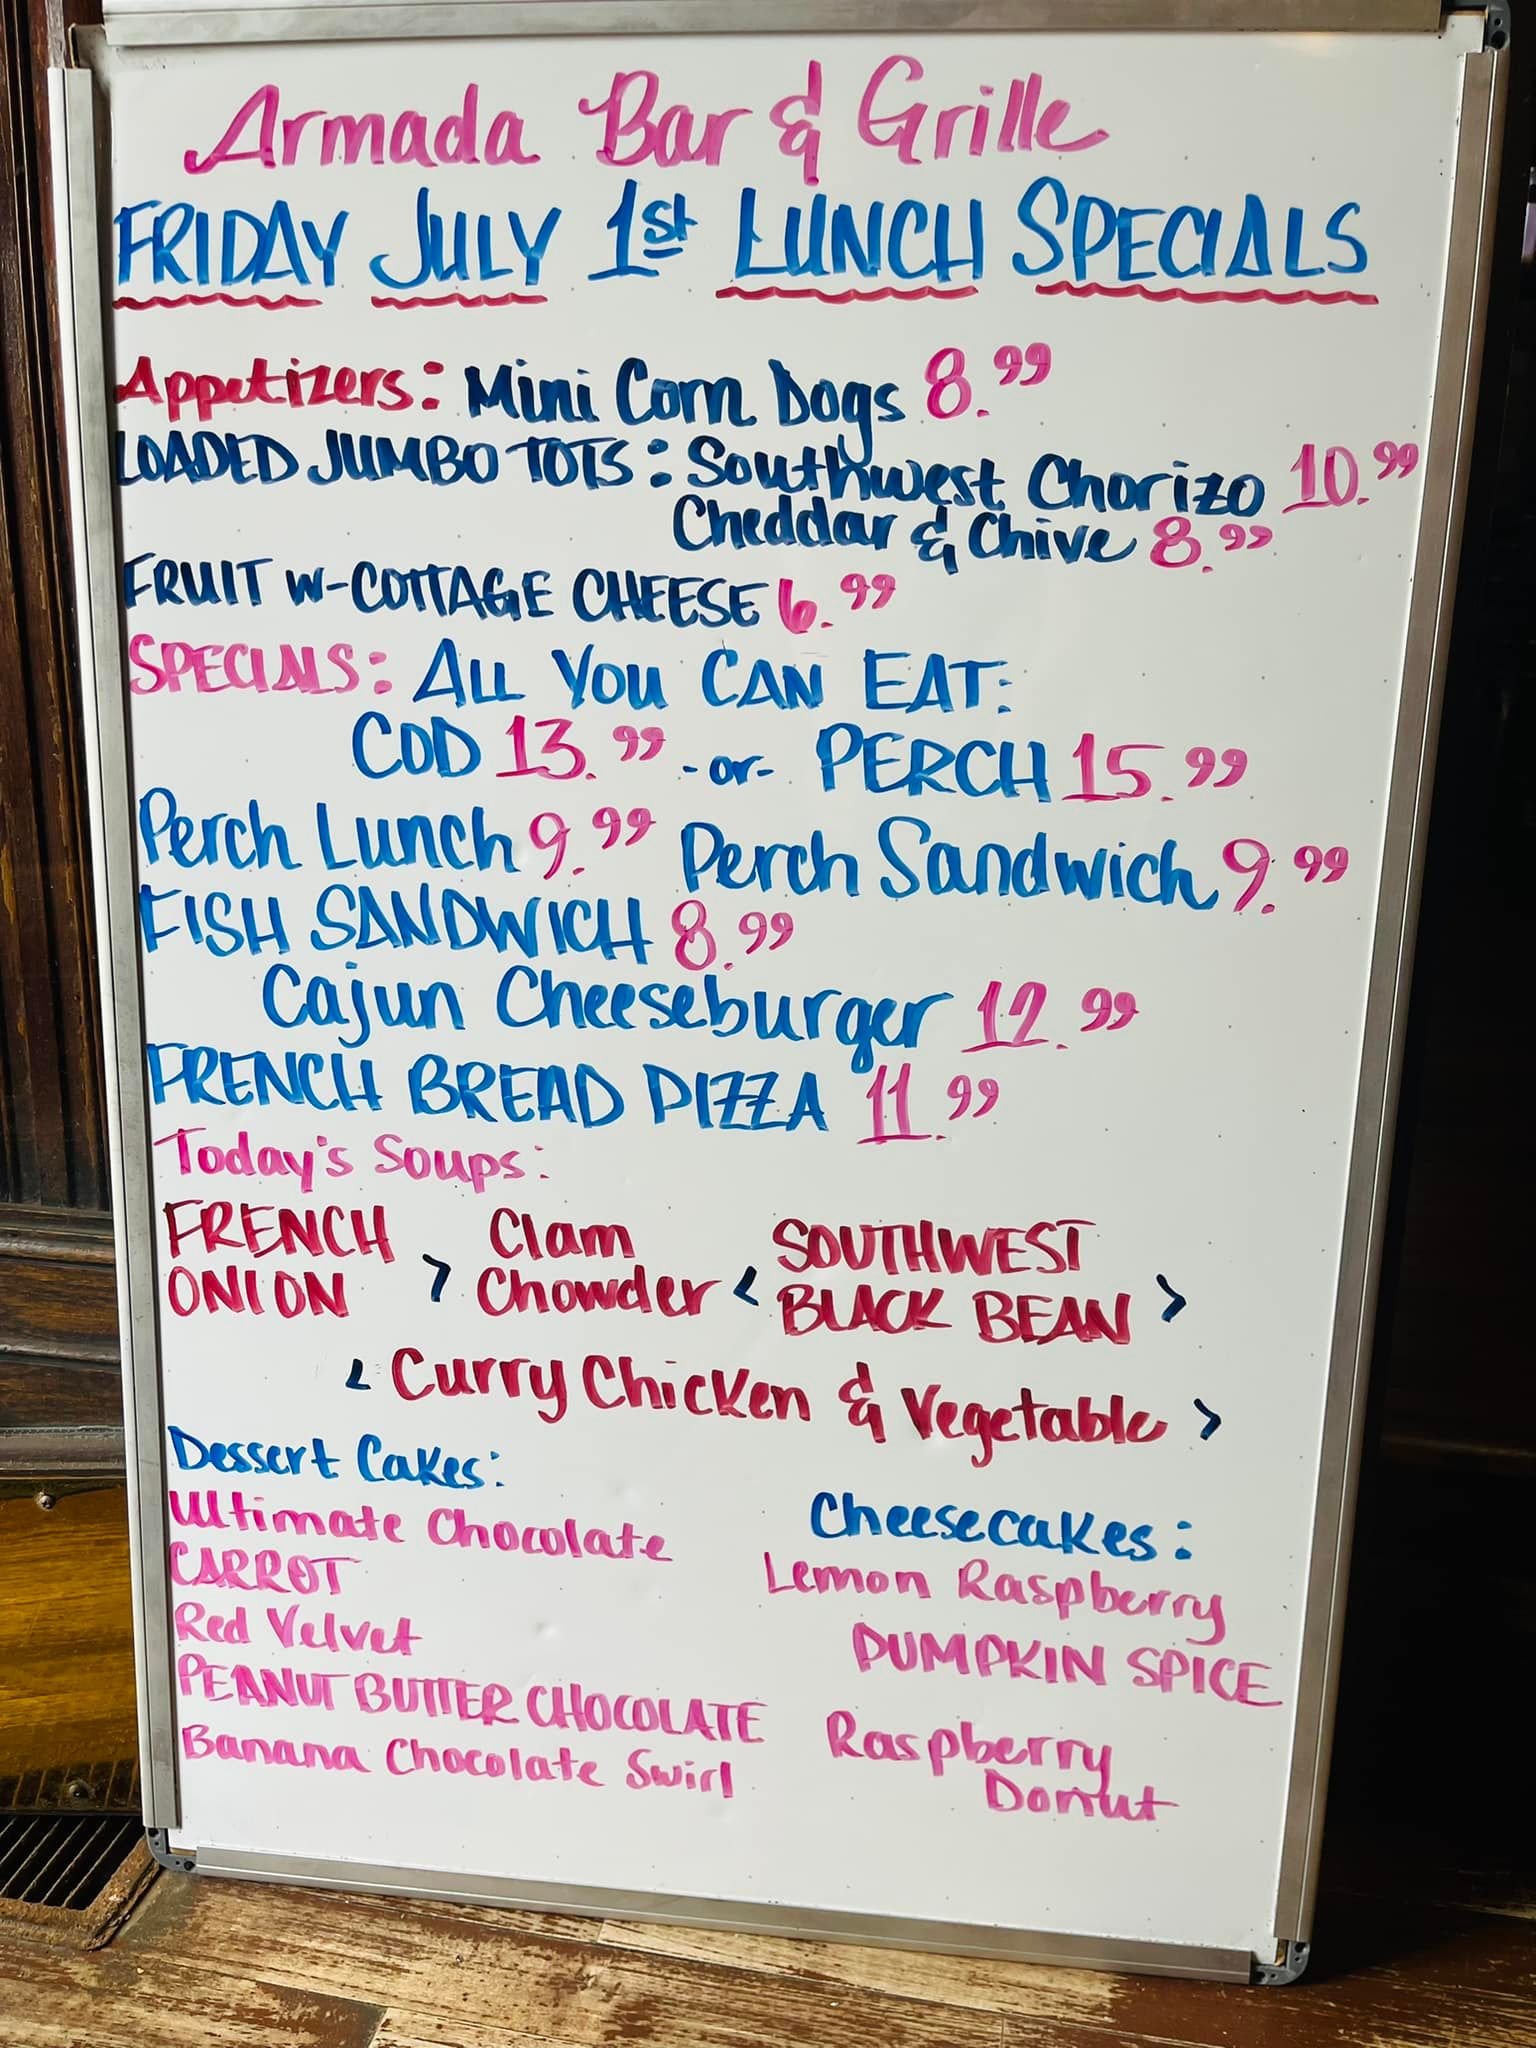 Armada Bar & Grille
FRIDAY JULY 1st LUNCH SPECIALS
Appetizers: Mini Corn Dogs 8.99
LOADED JUMBO TOTS: Southwest Chorizo 10.99
Cheddar & Chive 8.99
FRUIT W-COTTAGE CHEESE 6.99
SPECIALS: ALL YOU CAN EAT:
COD 13.99 -or- PERCH 15.99
Perch Lunch 9.99 Perch Sandwich 9.99
FISH SANDWICH 8.99
Cajun Cheeseburger 12.99
FRENCH BREAD PIZZA 11.99
Today's Soups:
FRENCH
ONION >
Clam
Chowder <
SOUTHWEST
BLACK BEAN >
< Curry Chicken & Vegetable >
Dessert Cakes:
Ultimate Chocolate
CARROT
Red Velvet
PEANUT BUTTER CHOCOLATE
Banana Chocolate Swirl
Cheesecakes:
Lemon Raspberry
PUMPKIN SPICE
Raspberry
Donut